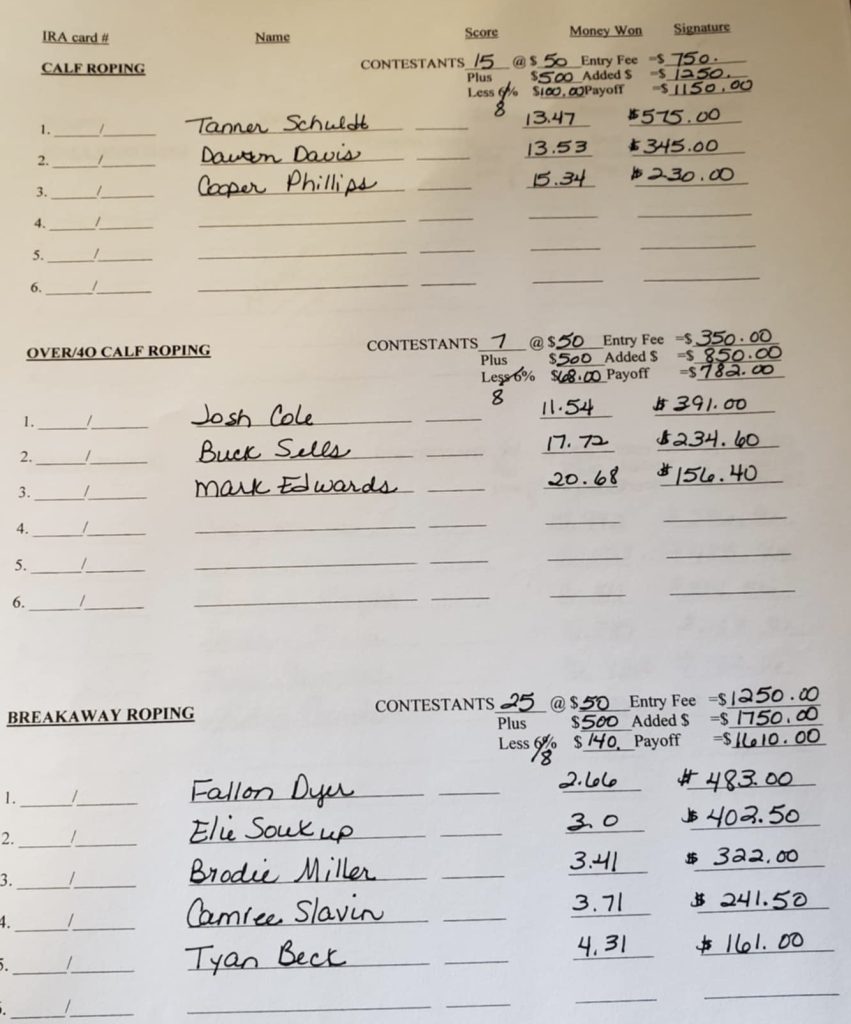 IRA card # Name Score Money Won Signature
CALF ROPING CONTESTANTS 15 @ $ 50 Entry Fee =$ 750.
Plus $500 Added $ =$ 1250.
Less 6% 8 $100.00 Payoff =$ 1150.00
1. / Tanner Schuldt 13.47 $575.00
2. / Davis 13.53 $345.00
3. / Cooper Phillips 15.34 $230.00
4. /
5. /
6. /
OVER/40 CALF ROPING CONTESTANTS 7 @ $50 Entry Fee =$ 350.00
Plus $500 Added $ =$ 850.00
Less 6% 8 $68.00 Payoff =$ 782.00
1. / Josh Cole 11.54 $391.00
2. / Buck Sells 17.72 $234.60
3. / Mark Edwards 20.68 $156.40
4. /
5. /
6. /
BREAKAWAY ROPING CONTESTANTS 25 @ $50 Entry Fee =$1250.00
Plus $500 Added $ =$ 1750.00
Less 6% 8 $ 140. Payoff =$1610.00
1. / Fallon Dyer 2.66 $ 483.00
2. / Elie Soukup 3.0 $ 402.50
3. / Brodie Miller 3.41 $ 322.00
4. / Camree Slavin 3.71 $ 241.50
5. / Tyan Beck 4.31 $ 161.00
/